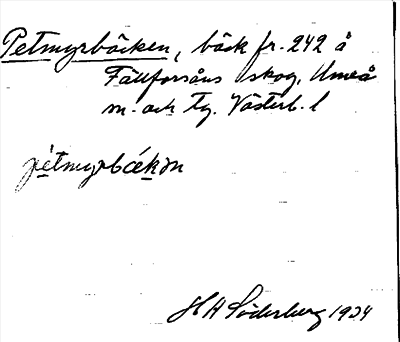 Petmyrbäcken, bäck fr. 242 å
Fällforsåns skog, Umeå
sn. och tg. Västerb. l
pètmyrbækən
H A Söderberg 1934